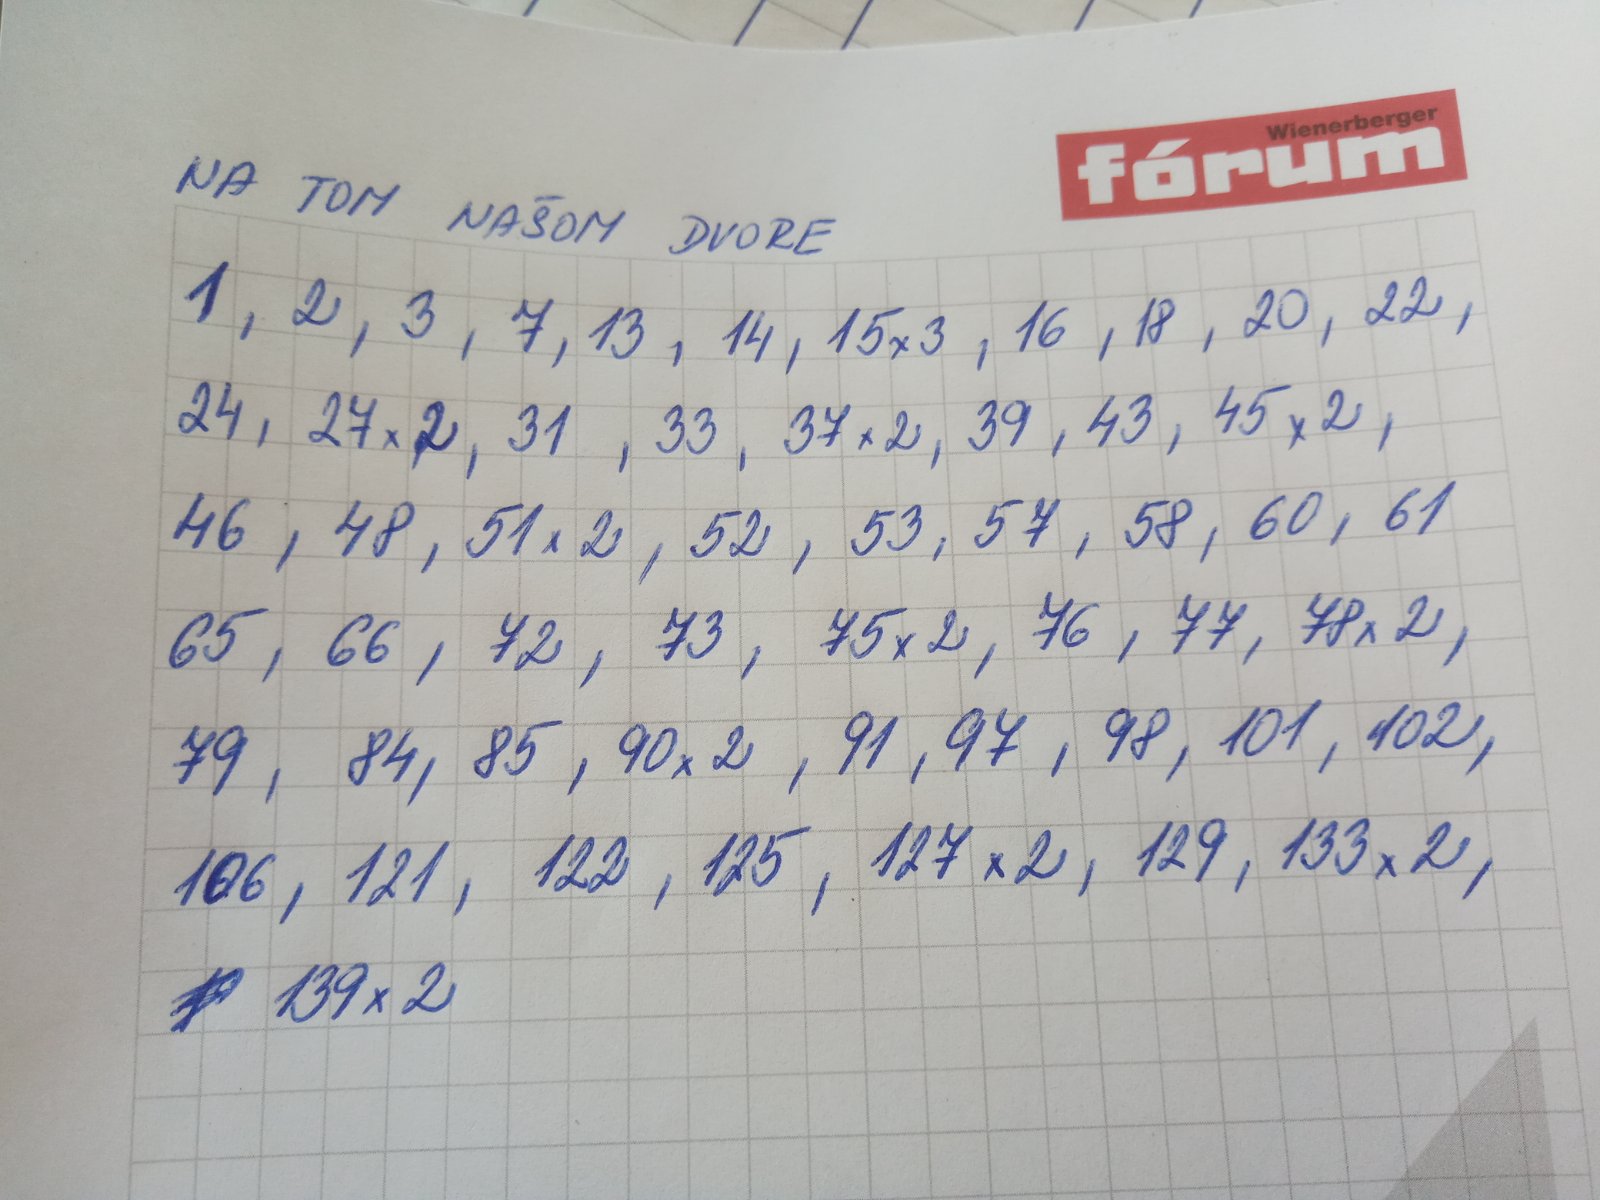 Wienerberger
fórum
NA TOM NAŠOM DVORE
1, 2, 3, 7, 13, 14, 15x3, 16, 18, 20, 22,
24, 27x2, 31, 33, 37x2, 39, 43, 45x2,
46, 48, 51x2, 52, 53, 57, 58, 60, 61
65, 66, 72, 73, 75x2, 76, 77, 78x2,
79, 84, 85, 90x2, 91, 97, 98, 101, 102,
106, 121, 122, 125, 127x2, 129, 133x2,
139x2